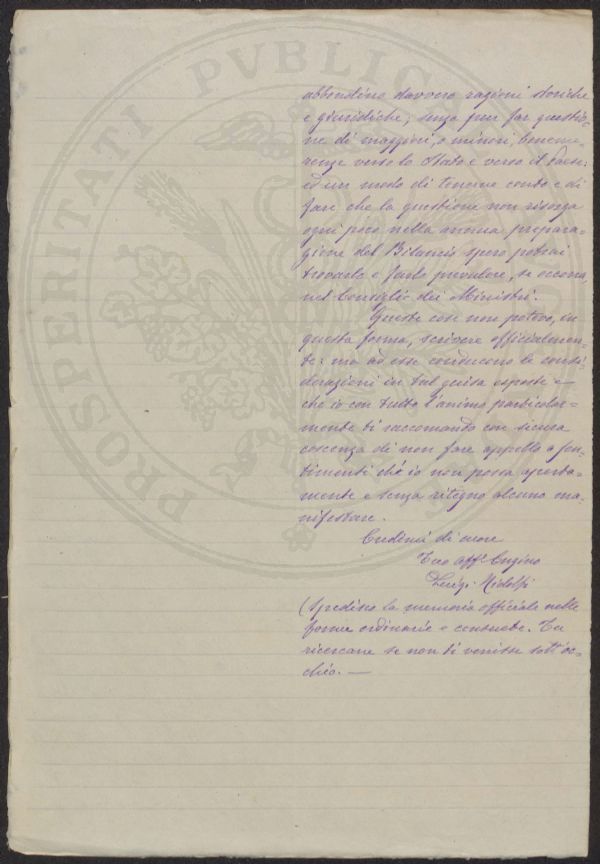 PROSPERITATI PVBLICAE
abbondino davvero ragioni storiche
e giuridiche, senza pur far questio-
ne di maggiori, o minori, beneme-
renze verso lo Stato e verso il Paese
ed un modo di tenerne conto e di
fare che la questione non risorga
ogni poco nella annua prepara-
zione del Bilancio spero potrai
trovarlo e farlo prevalere, se occorra,
nel Consiglio dei Ministri.
Queste cose non potevo, in
questa forma, scrivere officialmen-
te: ma ad esse conducono le consi-
derazioni in tal guisa esposte e
che io con tutto l'animo particolar-
mente ti raccomando con sicura
coscenza di non fare appello a sen-
timenti ch'io non possa aperta-
mente e senza ritegno alcuno ma-
nifestare.
Credimi di cuore
Tuo aff. Cugino
Luigi Ridolfi
(Spedisco la memoria officiale nelle
forme ordinarie e consuete.
ricercare se non ti venisse sott'oc-
chio. —